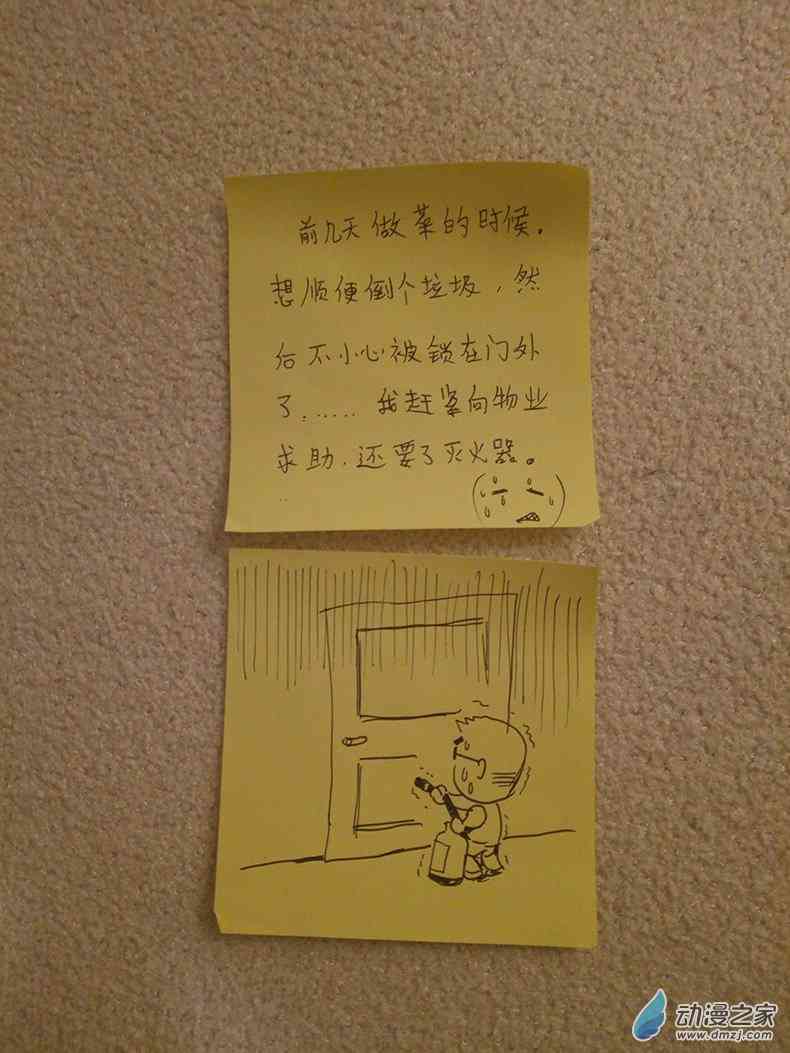 前几天做菜的时候。
想顺便倒个垃圾，然
后不小心被锁在门外
了……我赶紧向物业
求助，还要了灭火器。
动漫之家
www.dmzj.com